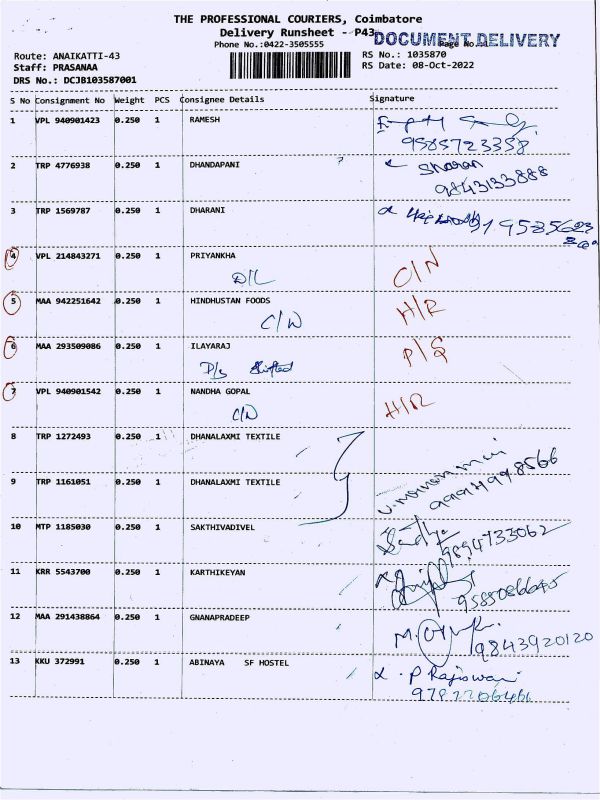 THE PROFESSIONAL COURIERS, Coimbatore
Delivery Runsheet - P43
DOCUMENT DELIVERY
Phone No.:0422-3505555
Route: ANAIKATTI-43
RS No.: 1035870
Staff: PRASANAA
RS Date: 08-Oct-2022
DRS No.: DCJB103587001
S No Consignment No Weight PCS Consignee Details Signature
1 VPL 940901423 0.250 1 RAMESH
9585723358
2 TRP 4776938 0.250 1 DHANDAPANI ? Sharan
9843133888
3 TRP 1569787 0.250 1 DHARANI
4 VPL 214843271 0.250 1 PRIYANKHA
D/L C/N
5 MAA 942251642 0.250 1 HINDHUSTAN FOODS H/R
C/N
6 MAA 293509086 0.250 1 ILAYARAJ P/S
P/S Shifted
7 VPL 940901542 0.250 1 NANDHA GOPAL H/R
C/N
8 TRP 1272493 0.250 1 DHANALAXMI TEXTILE
9 TRP 1161051 0.250 1 DHANALAXMI TEXTILE
10 MTP 1185030 0.250 1 SAKTHIVADIVEL Sandhya
9894733062
11 KRR 5543700 0.250 1 KARTHIKEYAN
12 MAA 291438864 0.250 1 GNANAPRADEEP
9843920120
13 KKU 372991 0.250 1 ABINAYA SF HOSTEL P Rajiswari